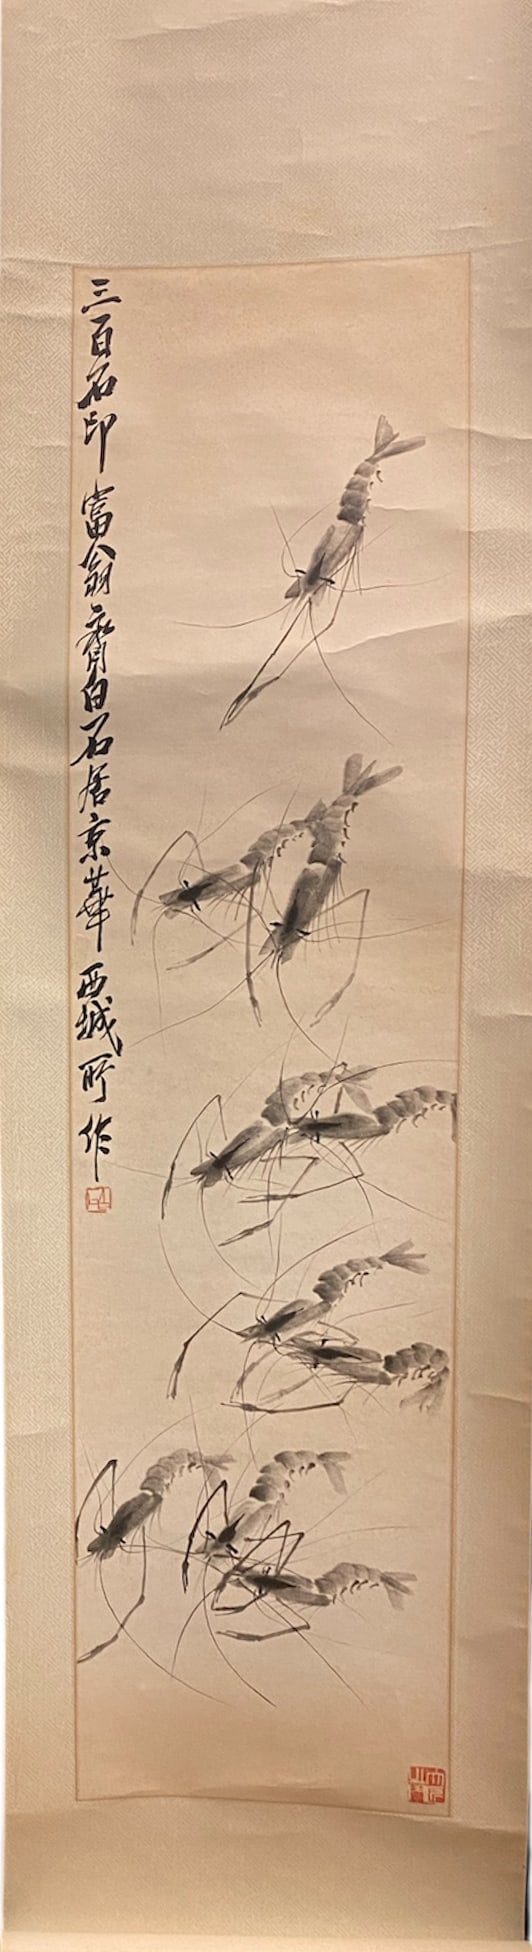 三百石印富翁齊白石居京華西城所作